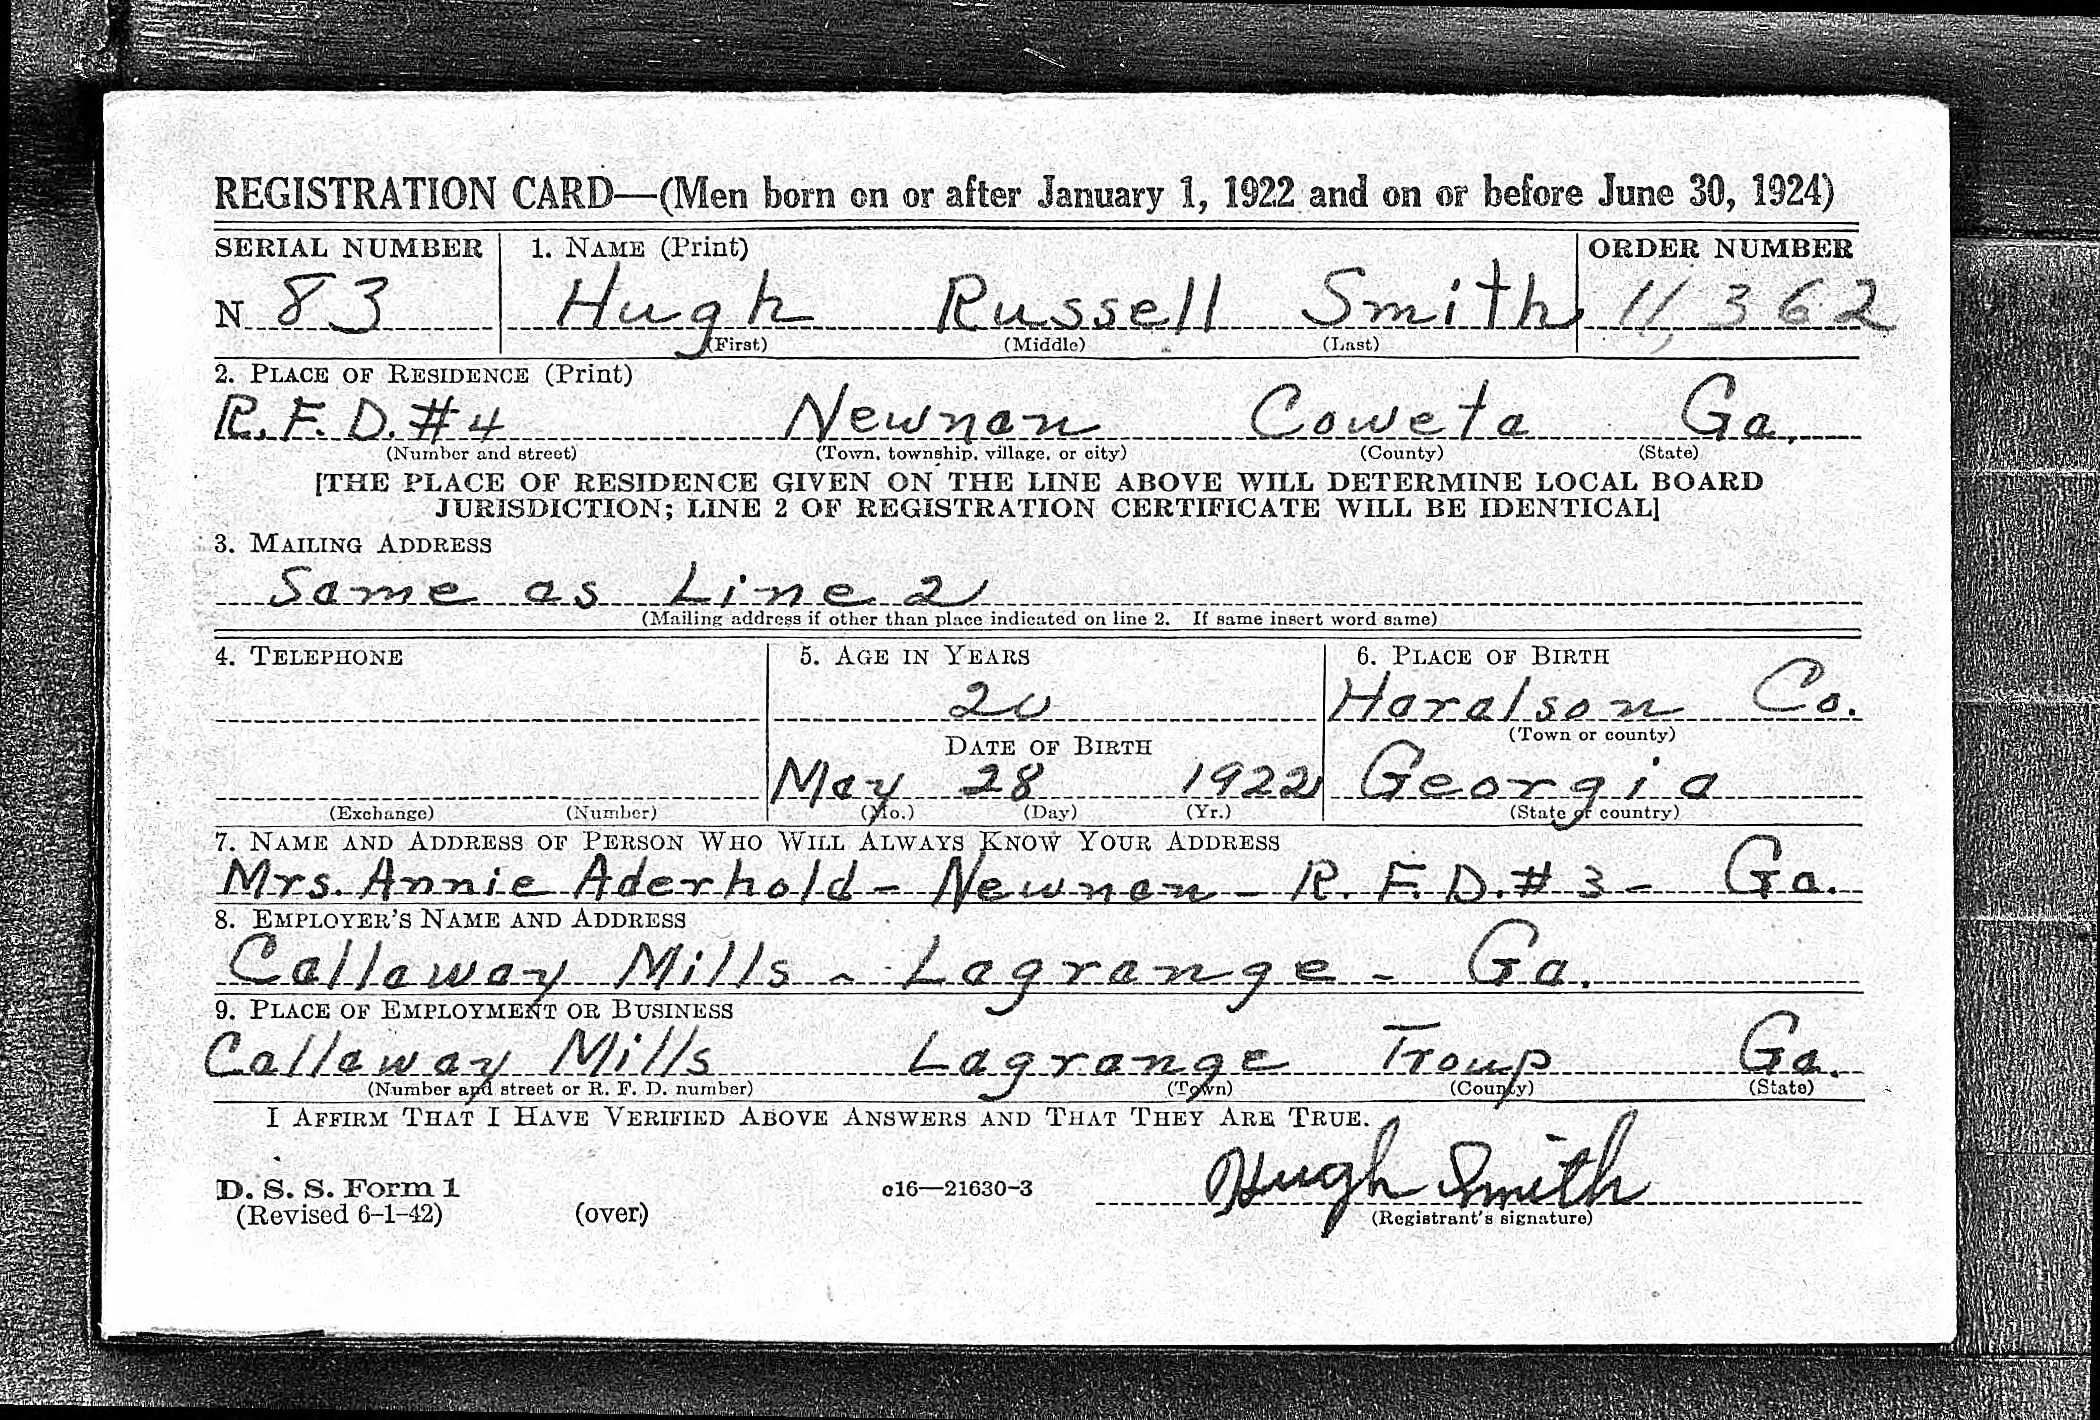 REGISTRATION CARD—(Men born on or after January 1, 1922 and on or before June 30, 1924)
SERIAL NUMBER 1. NAME (Print) ORDER NUMBER
N 83 Hugh Russell Smith 11,362
(First) (Middle) (Last)
2. PLACE OF RESIDENCE (Print)
R.F.D.#4 Newnan Coweta Ga.
(Number and street) (Town, township, village, or city) (County) (State)
[THE PLACE OF RESIDENCE GIVEN ON THE LINE ABOVE WILL DETERMINE LOCAL BOARD
JURISDICTION; LINE 2 OF REGISTRATION CERTIFICATE WILL BE IDENTICAL]
3. MAILING ADDRESS
Same as Line 2
(Mailing address if other than place indicated on line 2. If same insert word same)
4. TELEPHONE 5. AGE IN YEARS 6. PLACE OF BIRTH
20 Haralson Co.
(Town or county)
DATE OF BIRTH
May 28 1922 Georgia
(Exchange) (Number) (Mo.) (Day) (Yr.) (State or country)
7. NAME AND ADDRESS OF PERSON WHO WILL ALWAYS KNOW YOUR ADDRESS
Mrs. Annie Aderhold - Newnan - R.F.D.#3 - Ga.
8. EMPLOYER'S NAME AND ADDRESS
Callaway Mills - Lagrange - Ga.
9. PLACE OF EMPLOYMENT OR BUSINESS
Callaway Mills Lagrange Troup Ga.
(Number and street or R. F. D. number) (Town) (County) (State)
I AFFIRM THAT I HAVE VERIFIED ABOVE ANSWERS AND THAT THEY ARE TRUE.
Hugh Smith
D. S. S. Form 1 c16—21630-3
(Revised 6-1-42) (over) (Registrant's signature)